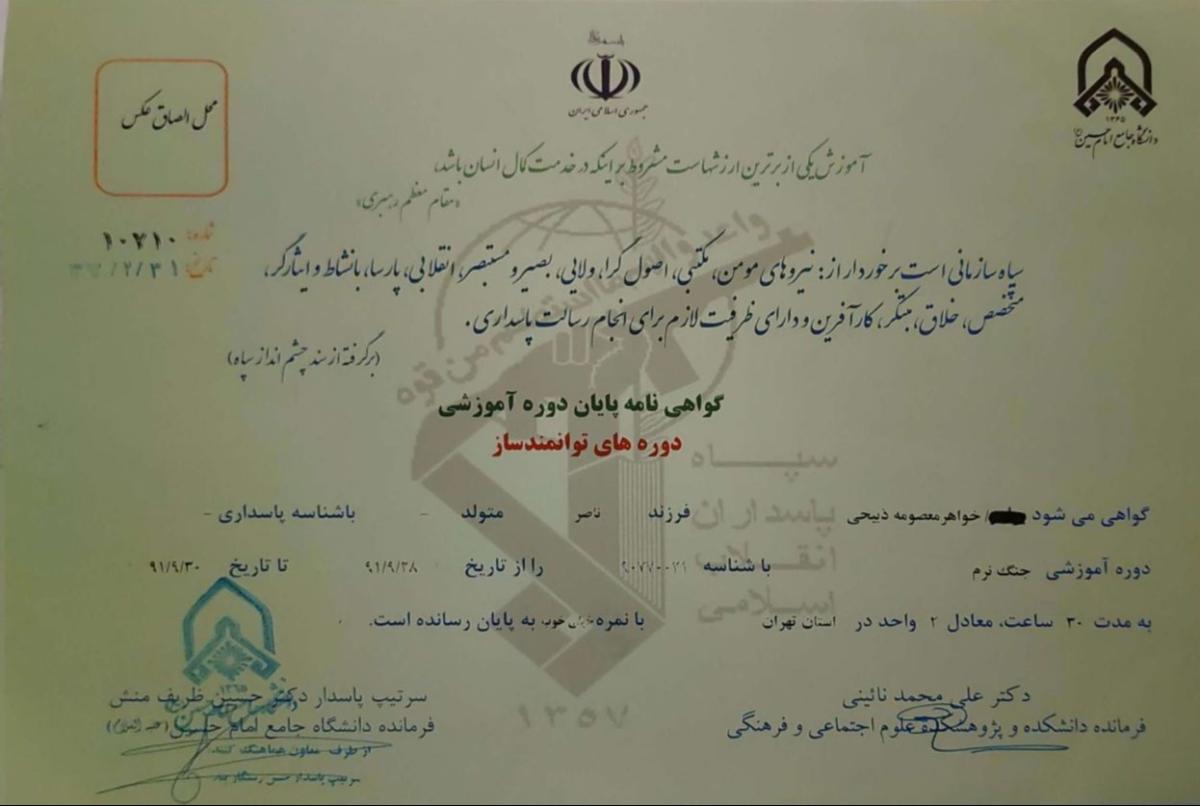 باسمه تعالی
جمهوری اسلامی ایران
۱۳۶۵
دانشگاه جامع امام حسین
محل الصاق عکس
آموزش یکی از برترین ارزشهاست مشروط بر اینکه در خدمت کمال انسان باشد.
«مقام معظم رهبری»
شماره: ۱۰۷۱۰
تاریخ:
سپاه سازمانی است برخوردار از: نیروهای مومن، مکتبی، اصول گرا، ولایی، بصیر و مستبصر، انقلابی، پارسا، بانشاط و ایثارگر،
متخصص، خلاق، مبتکر، کارآفرین و دارای ظرفیت لازم برای انجام رسالت پاسداری.
(برگرفته از سند چشم انداز سپاه)
گواهی نامه پایان دوره آموزشی
دوره های توانمندساز
گواهی می شود / خواهر معصومه ذبیحی فرزند ناصر متولد - باشناسه پاسداری -
دوره آموزشی جنگ نرم با شناسه را از تاریخ ۹۱/۹/۲۸ تا تاریخ ۹۱/۹/۳۰
به مدت ۳۰ ساعت، معادل ۲ واحد در استان تهران با نمره خیلی خوب به پایان رسانده است.
دکتر علی محمد نائینی
فرمانده دانشکده و پژوهشکده علوم اجتماعی و فرهنگی
سرتیپ پاسدار دکتر حسین ظریف منش
فرمانده دانشگاه جامع امام حسین
از طرف معاون هماهنگ کننده
سرتیپ پاسدار حسن رستگار
واعدوا لهم ما استطعتم من قوه
سپاه
پاسداران
انقلاب
اسلامی
۱۳۵۷